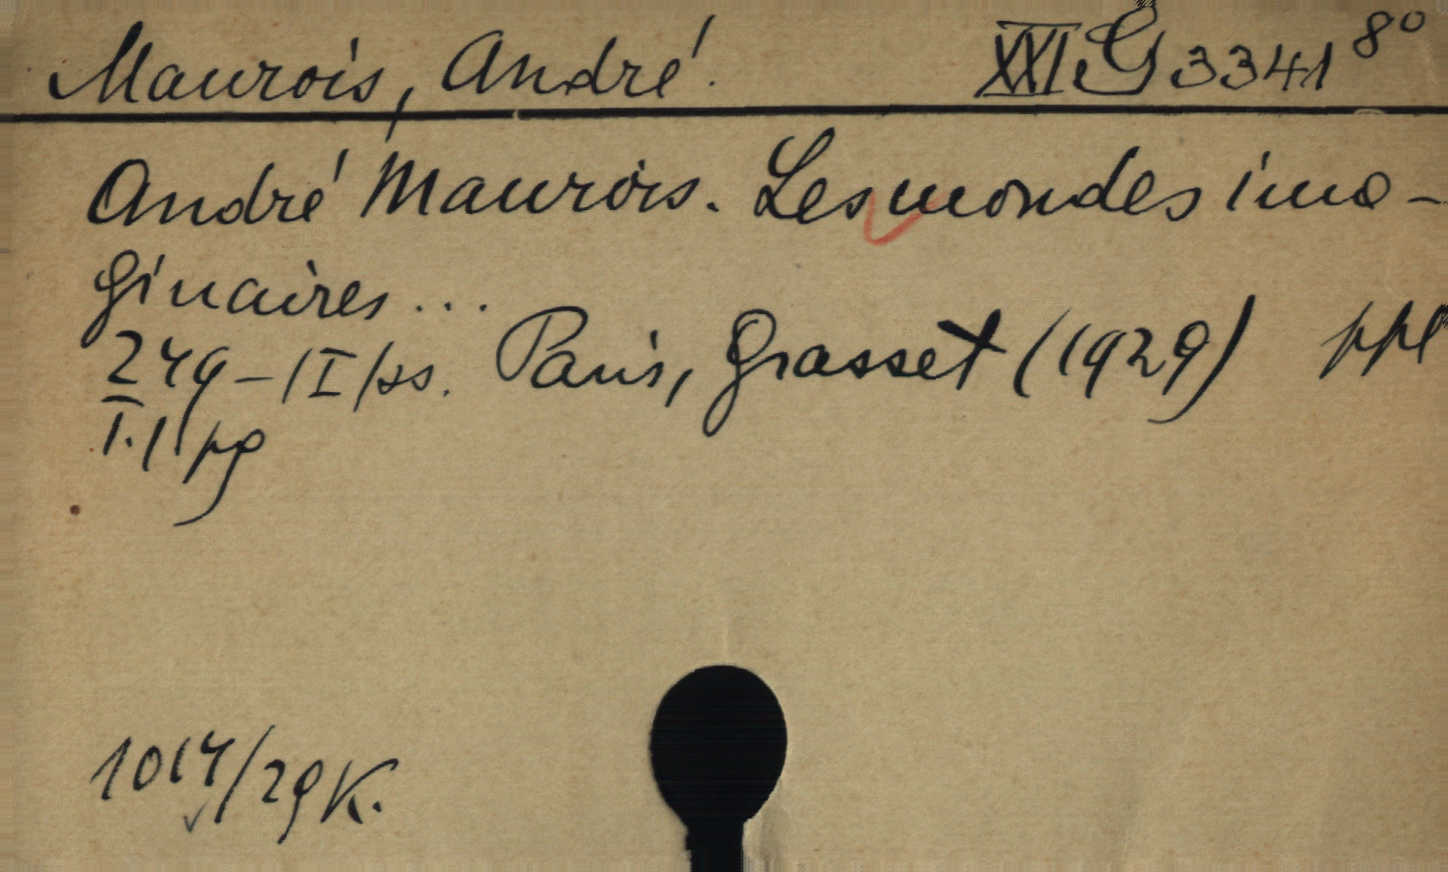 Maurois, André. XXI G 3341 8°
André Maurois. Les mondes ima-
ginaires...
249-/I/ss. Paris, Grasset (1929) ppl
I. 1 pg
1014/29 K.